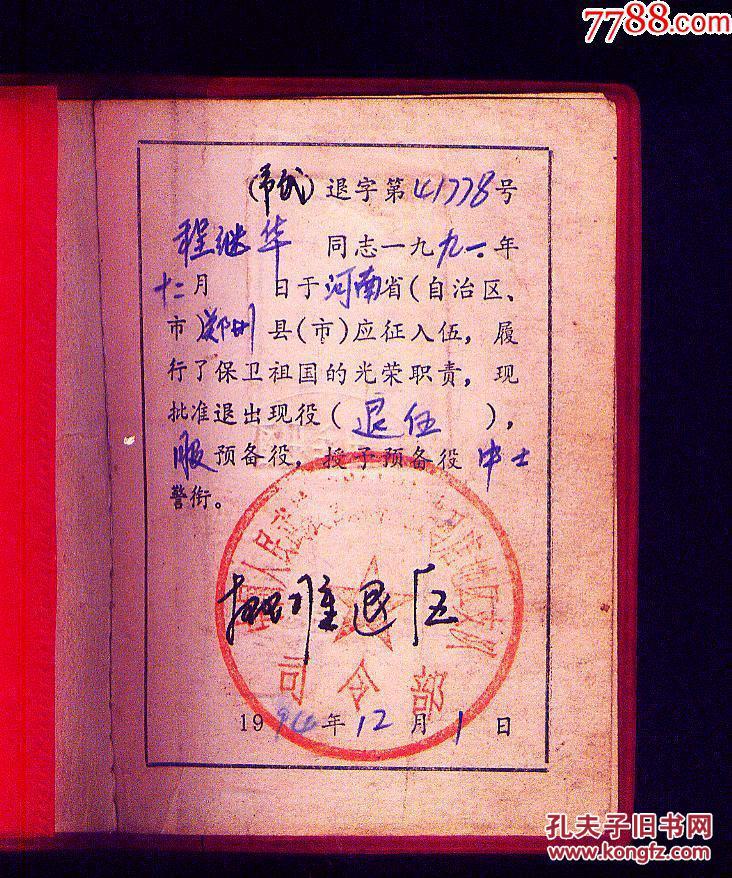 7788.com
退字第41778号
程继华 同志一九九一年
十二月 日于河南省(自治区、
市)郑州县(市)应征入伍,履
行了保卫祖国的光荣职责,现
批准退出现役(退伍),
服预备役,授予预备役中士
警衔。
中国人民武装警察
支队
司令部
批准退伍
19 年12月1日
孔夫子旧书网
www.kongfz.com